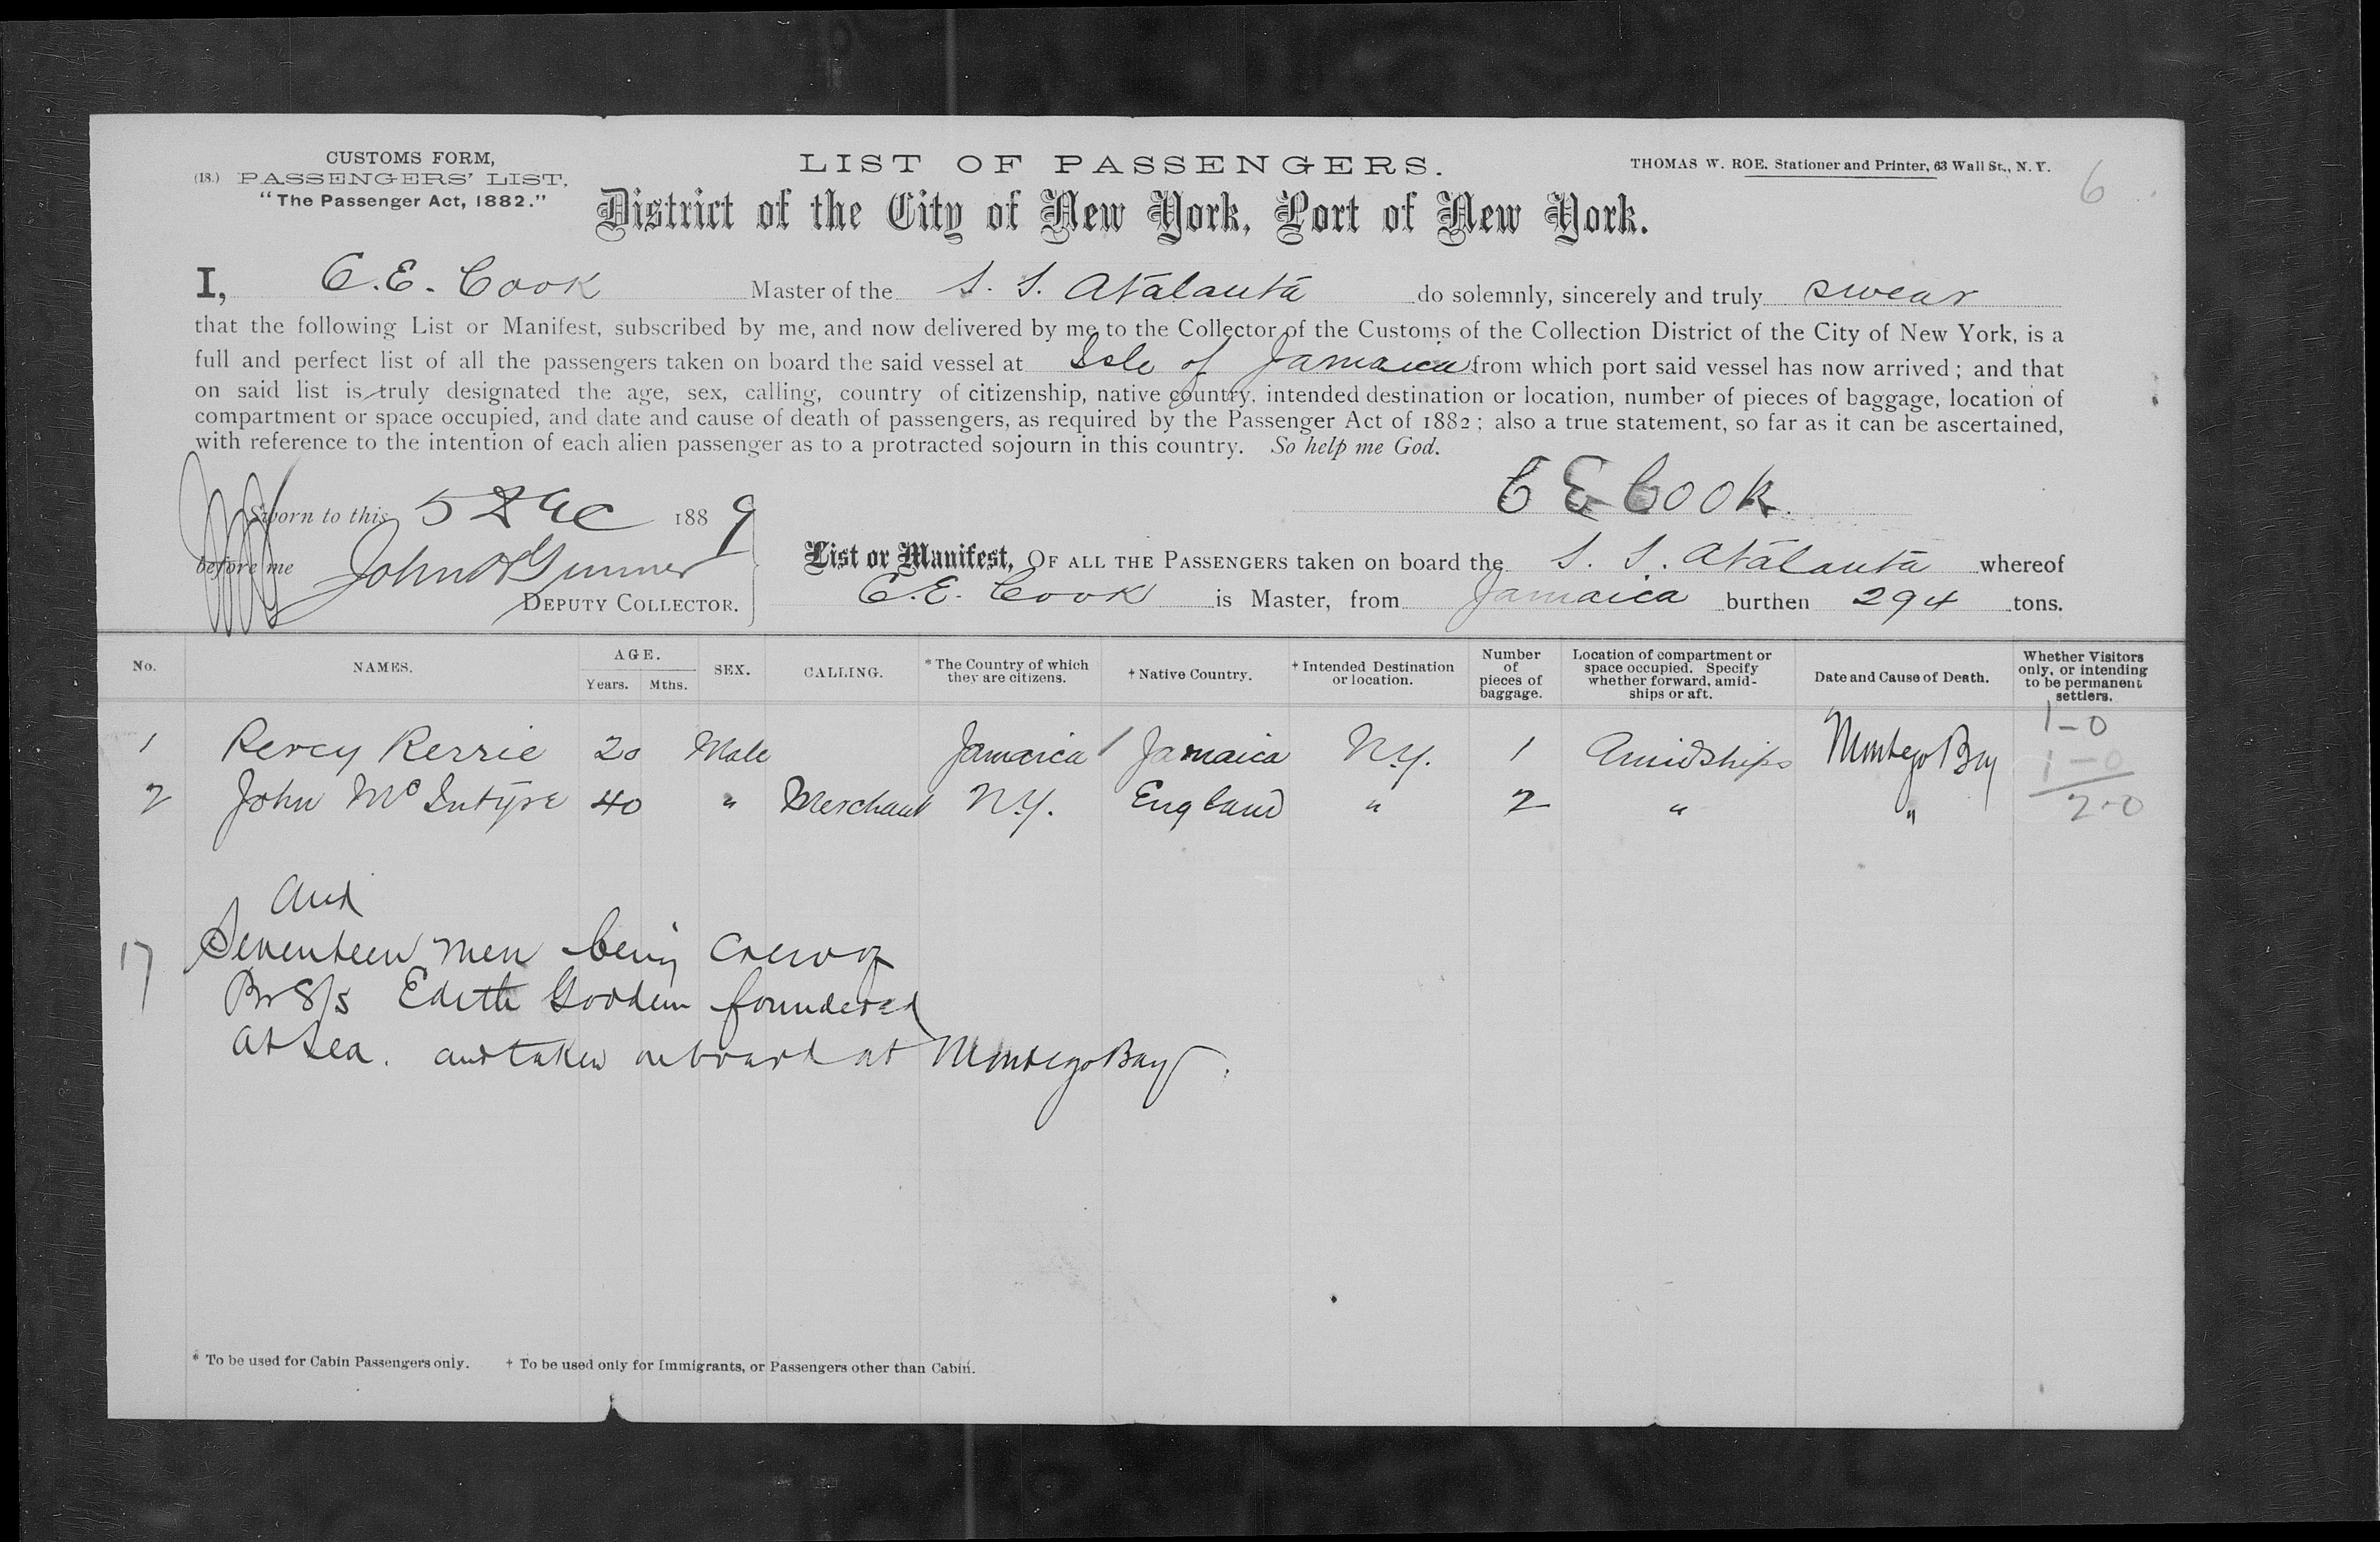 CUSTOMS FORM,
(18.) PASSENGERS' LIST,
"The Passenger Act, 1882."
LIST OF PASSENGERS.
THOMAS W. ROE. Stationer and Printer, 63 Wall St., N. Y.
6
District of the City of New York, Port of New York.
I, C. E. Cook Master of the S. S. Atalanta do solemnly, sincerely and truly swear
that the following List or Manifest, subscribed by me, and now delivered by me to the Collector of the Customs of the Collection District of the City of New York, is a
full and perfect list of all the passengers taken on board the said vessel at Isle of Jamaica from which port said vessel has now arrived; and that
on said list is truly designated the age, sex, calling, country of citizenship, native country, intended destination or location, number of pieces of baggage, location of
compartment or space occupied, and date and cause of death of passengers, as required by the Passenger Act of 1882; also a true statement, so far as it can be ascertained,
with reference to the intention of each alien passenger as to a protracted sojourn in this country. So help me God.
C E Cook
Sworn to this 5 Dec 1889
before me John
DEPUTY COLLECTOR.
List or Manifest, OF ALL THE PASSENGERS taken on board the S. S. Atalanta whereof
C. E. Cook is Master, from Jamaica burthen 294 tons.
No. NAMES. AGE. Years. Mths. SEX. CALLING. * The Country of which they are citizens. † Native Country. † Intended Destination or location. Number of pieces of baggage. Location of compartment or space occupied. Specify whether forward, amid-ships or aft. Date and Cause of Death. Whether Visitors only, or intending to be permanent settlers.
1 Percy Kerrie 20 Male Jamaica / Jamaica N.Y. 1 Amidships Montego Bay 1-0
1-0
2 John McIntyre 40 " Merchant N.Y. England " 2 " " 2-0
And
17 Seventeen men being crew of
Br S/s Edith Godden foundered
at Sea. and taken onboard at Montego Bay.
* To be used for Cabin Passengers only. † To be used only for Immigrants, or Passengers other than Cabin.